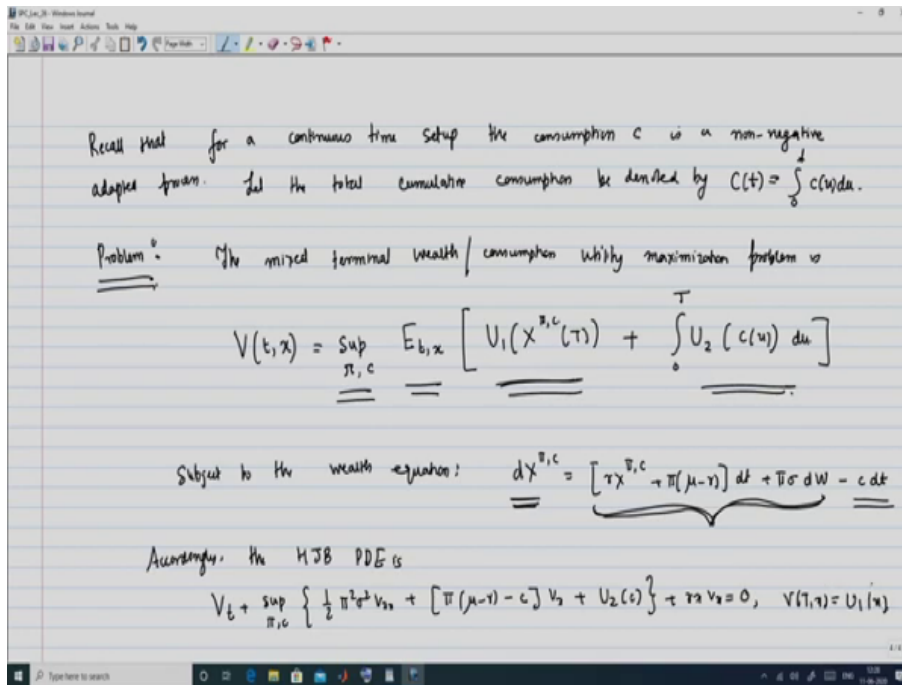 IPC_Lec_26 - Windows Journal
File Edit View Insert Actions Tools Help
Page Width
Recall that for a continuous time setup the consumption c is a non-negative
adapted process. Let the total cumulative consumption be denoted by C(t) = ∫₀ᵗ c(u)du.
Problem: The mixed terminal wealth / consumption utility maximization problem is
V(t,x) = sup_{π,c} E_{t,x} [ U₁(X^{π,c}(T)) + ∫₀ᵀ U₂(c(u)) du ]
Subject to the wealth equation: dX^{π,c} = [rX^{π,c} + π(μ-r)] dt + πσ dW - c dt
Accordingly, the HJB PDE is
V_t + sup_{π,c} { ½ π²σ² V_{xx} + [π(μ-r) - c] V_x + U₂(c) } + rx V_x = 0, V(T,x) = U₁(x)
Type here to search
12:28
ENG 11-06-2020